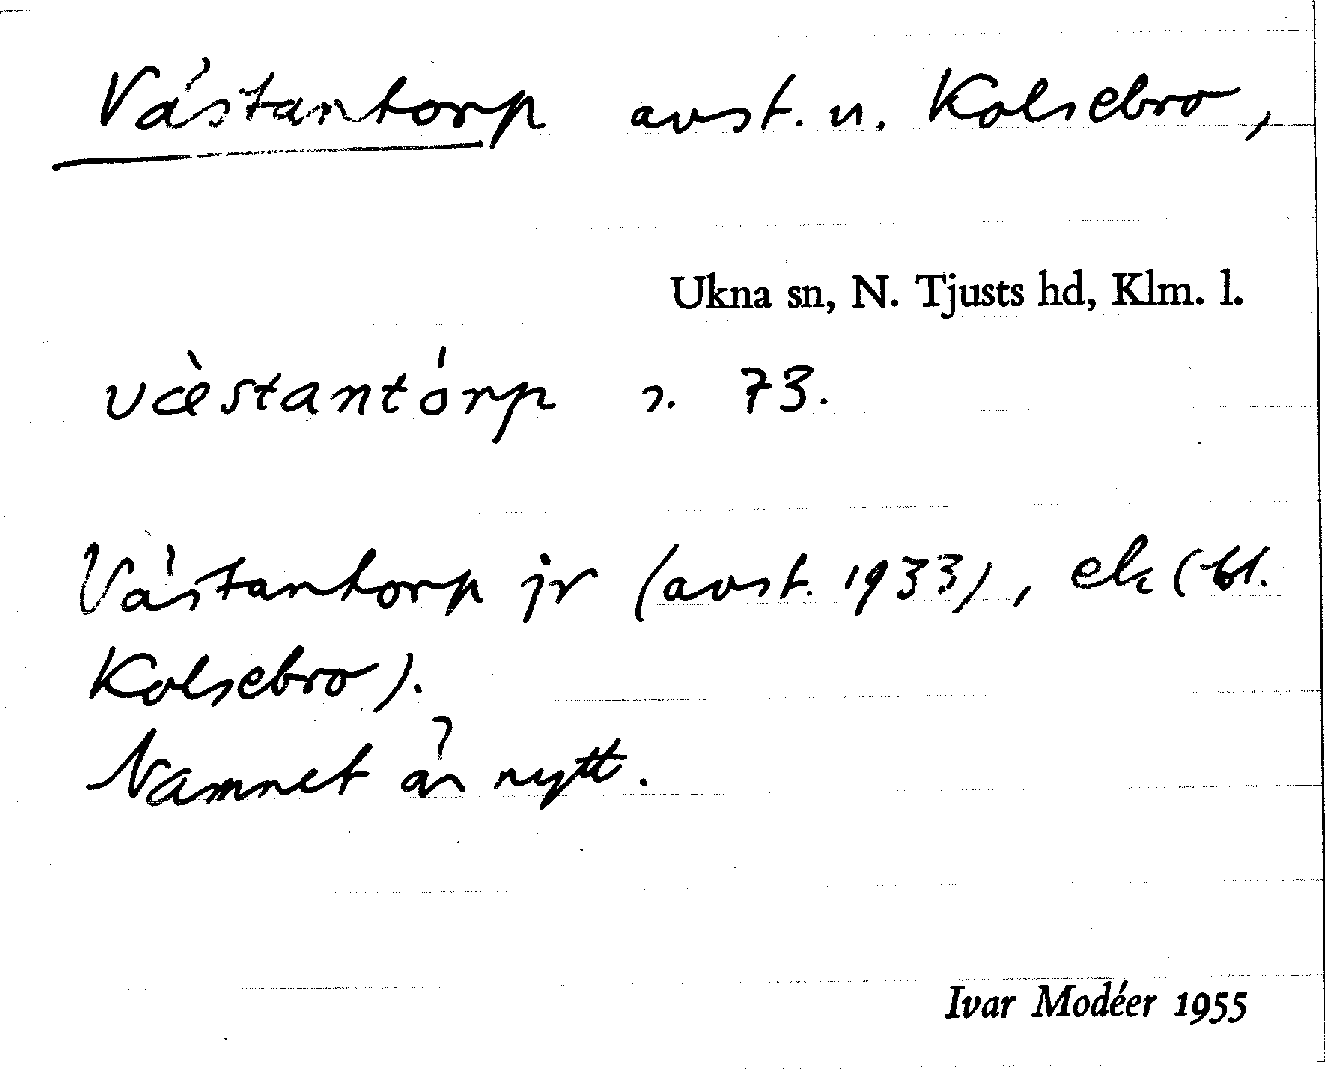 Västantorp avst. u. Kolsebro,
Ukna sn, N. Tjusts hd, Klm. l.
væ̀stantórp s. 73.
Västantorp jr (avst. 1933), ek (bl.
Kolsebro).
Namnet är nytt.
Ivar Modéer 1955